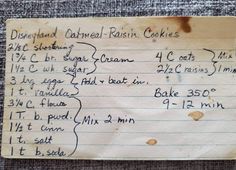 Disneyland Oatmeal-Raisin Cookies
2 1/4 C shortening
1 3/4 C br. sugar } Cream
1 1/2 C wh. sugar
3 lrg eggs } Add & beat in.
1 t. vanilla
3 1/4 C flour
1 T. b. pwd.
1 1/2 t cinn } Mix 2 min
1 t. salt
1 t b. soda
4 C oats } Mix
2 1/2 C raisins } 1 min
Bake 350°
9-12 min